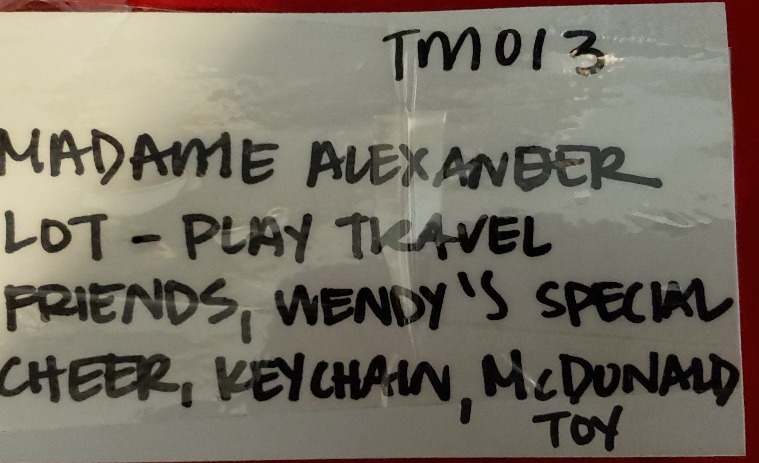 TM013
MADAME ALEXANDER
LOT - PLAY TRAVEL
FRIENDS, WENDY'S SPECIAL
CHEER, KEYCHAIN, McDONALD
TOY